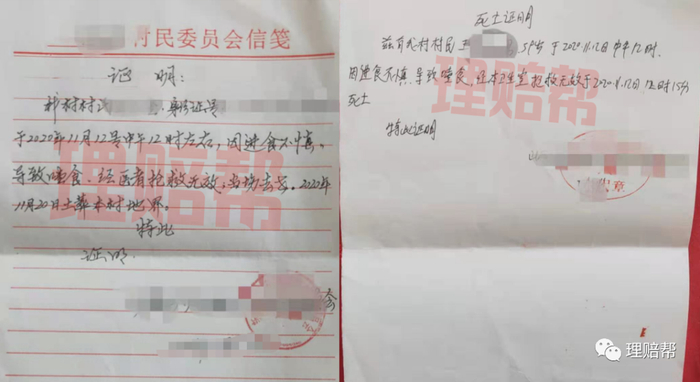 村民委员会信笺
证 明:
于2020年11月12号中午12时左右,因进食不慎,
导致噎食,经医者抢救无效,当场去世。2020年
11月20日土葬本村地界。
特此
证明
死亡证明
兹有我村村民王 58岁于2020.11.12日中午12时,
因进食不慎,导致噎食,经本卫生室抢救无效于2020.11.12日12时15分
死亡
特此证明
理赔帮
理赔帮
理赔帮